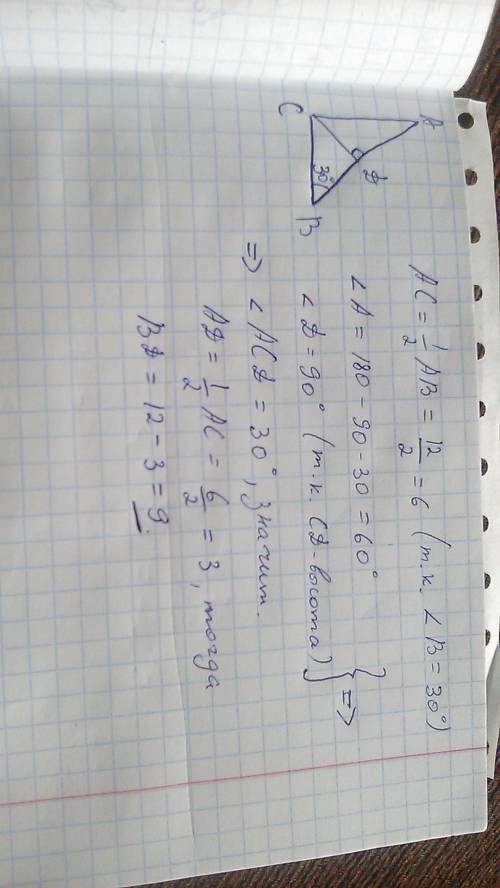 A
D
C
B
30°
AC = 1/2 AB = 12/2 = 6 (т.к. ∠B = 30°)
∠A = 180 - 90 - 30 = 60°
∠D = 90° (т.к. CD - высота) } =>
=> ∠ACD = 30°, значит.
AD = 1/2 AC = 6/2 = 3, тогда
BD = 12 - 3 = 9.